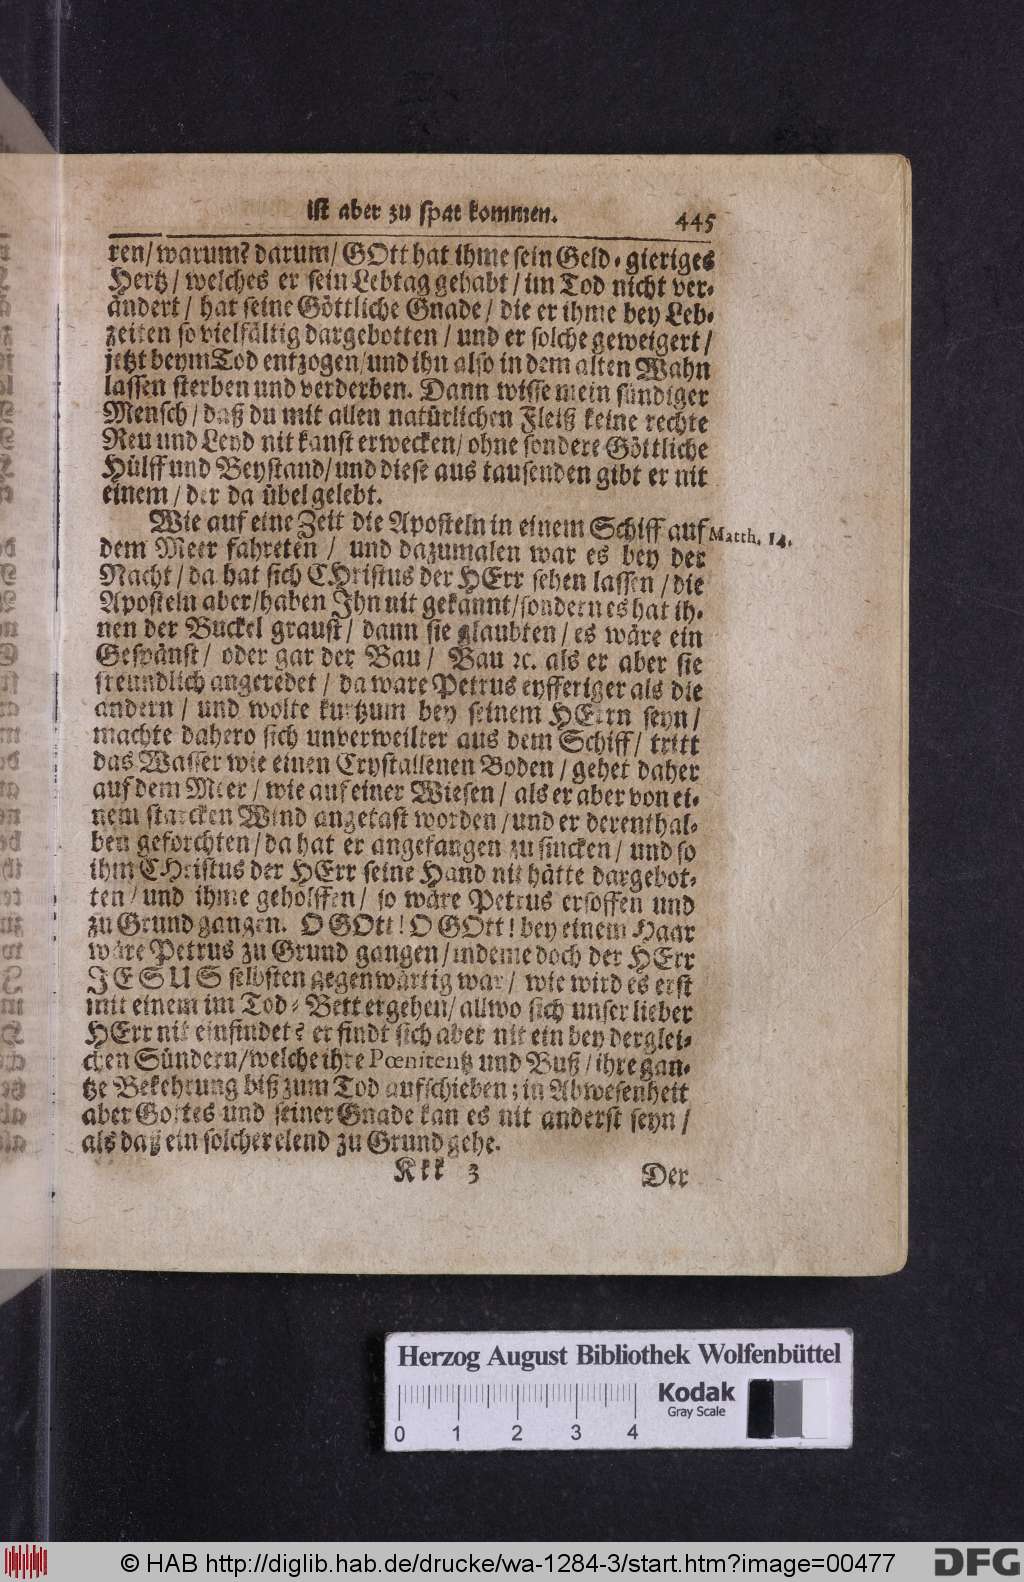 ist aber zu spat kommen. 445
ren/ warum? darum/ GOtt hat ihme sein Geld-gieriges
Hertz/ welches er sein Lebtag gehabt/ im Tod nicht ver-
ändert/ hat seine Göttliche Gnade/ die er ihme bey Leb-
zeiten so vielfältig dargebotten/ und er solche geweigert/
jetzt beym Tod entzogen/ und ihn also in dem alten Wahn
lassen sterben und verderben. Dann wisse mein sündiger
Mensch/ daß du mit allen natürlichen Fleiß keine rechte
Reu und Leyd nit kanst erwecken/ ohne sondere Göttliche
Hülff und Beystand/ und diese aus tausenden gibt er nit
einem/ der da übel gelebt.
Wie auf eine Zeit die Aposteln in einem Schiff auf Matth. 14.
dem Meer fahreten/ und dazumalen war es bey der
Nacht/ da hat sich CHristus der HErr sehen lassen/ die
Aposteln aber/ haben Ihn nit gekannt/ sondern es hat ih-
nen der Buckel graust/ dann sie glaubten/ es wäre ein
Gespänst/ oder gar der Bau/ Bau ꝛc. als er aber sie
freundlich angeredet/ da ware Petrus eyfferiger als die
andern/ und wolte kurtzum bey seinem HErrn seyn/
machte dahero sich unverweilter aus dem Schiff/ tritt
das Wasser wie einen Crystallenen Boden/ gehet daher
auf dem Meer/ wie auf einer Wiesen/ als er aber von ei-
nem starcken Wind angetast worden/ und er derenthal-
ben geforchten/ da hat er angefangen zu sincken/ und so
ihm CHristus der HErr seine Hand nit hätte dargebot-
ten/ und ihme geholffen/ so wäre Petrus ersoffen und
zu Grund gangen. O GOtt! O GOtt! bey einem Haar
wäre Petrus zu Grund gangen/ indeme doch der HErr
JESUS selbsten gegenwärtig war/ wie wird es erst
mit einem im Tod-Bett ergehen/ allwo sich unser lieber
HErr nit einfindet? er findt sich aber nit ein bey derglei-
chen Sündern/ welche ihre Pœnitentz und Buß/ ihre gan-
tze Bekehrung biß zum Tod aufschieben; in Abwesenheit
aber Gottes und seiner Gnade kan es nit anderst seyn/
als daß ein solcher elend zu Grund gehe.
Kkk 3 Der
Herzog August Bibliothek Wolfenbüttel
Kodak
Gray Scale
0 1 2 3 4
© HAB http://diglib.hab.de/drucke/wa-1284-3/start.htm?image=00477 DFG